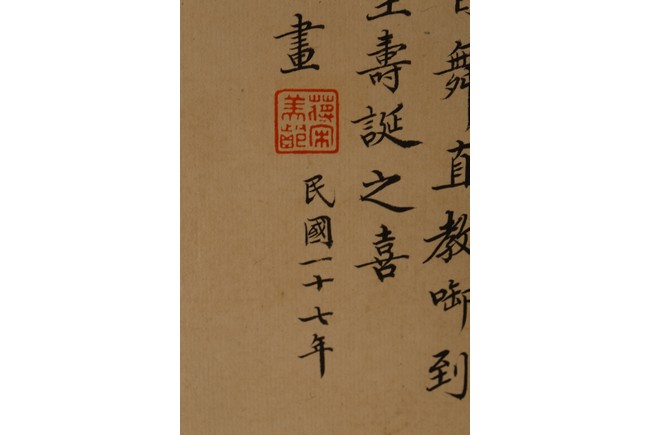 舞直教啣到
壽誕之喜
畫
蔣宋美齡
民國一十七年